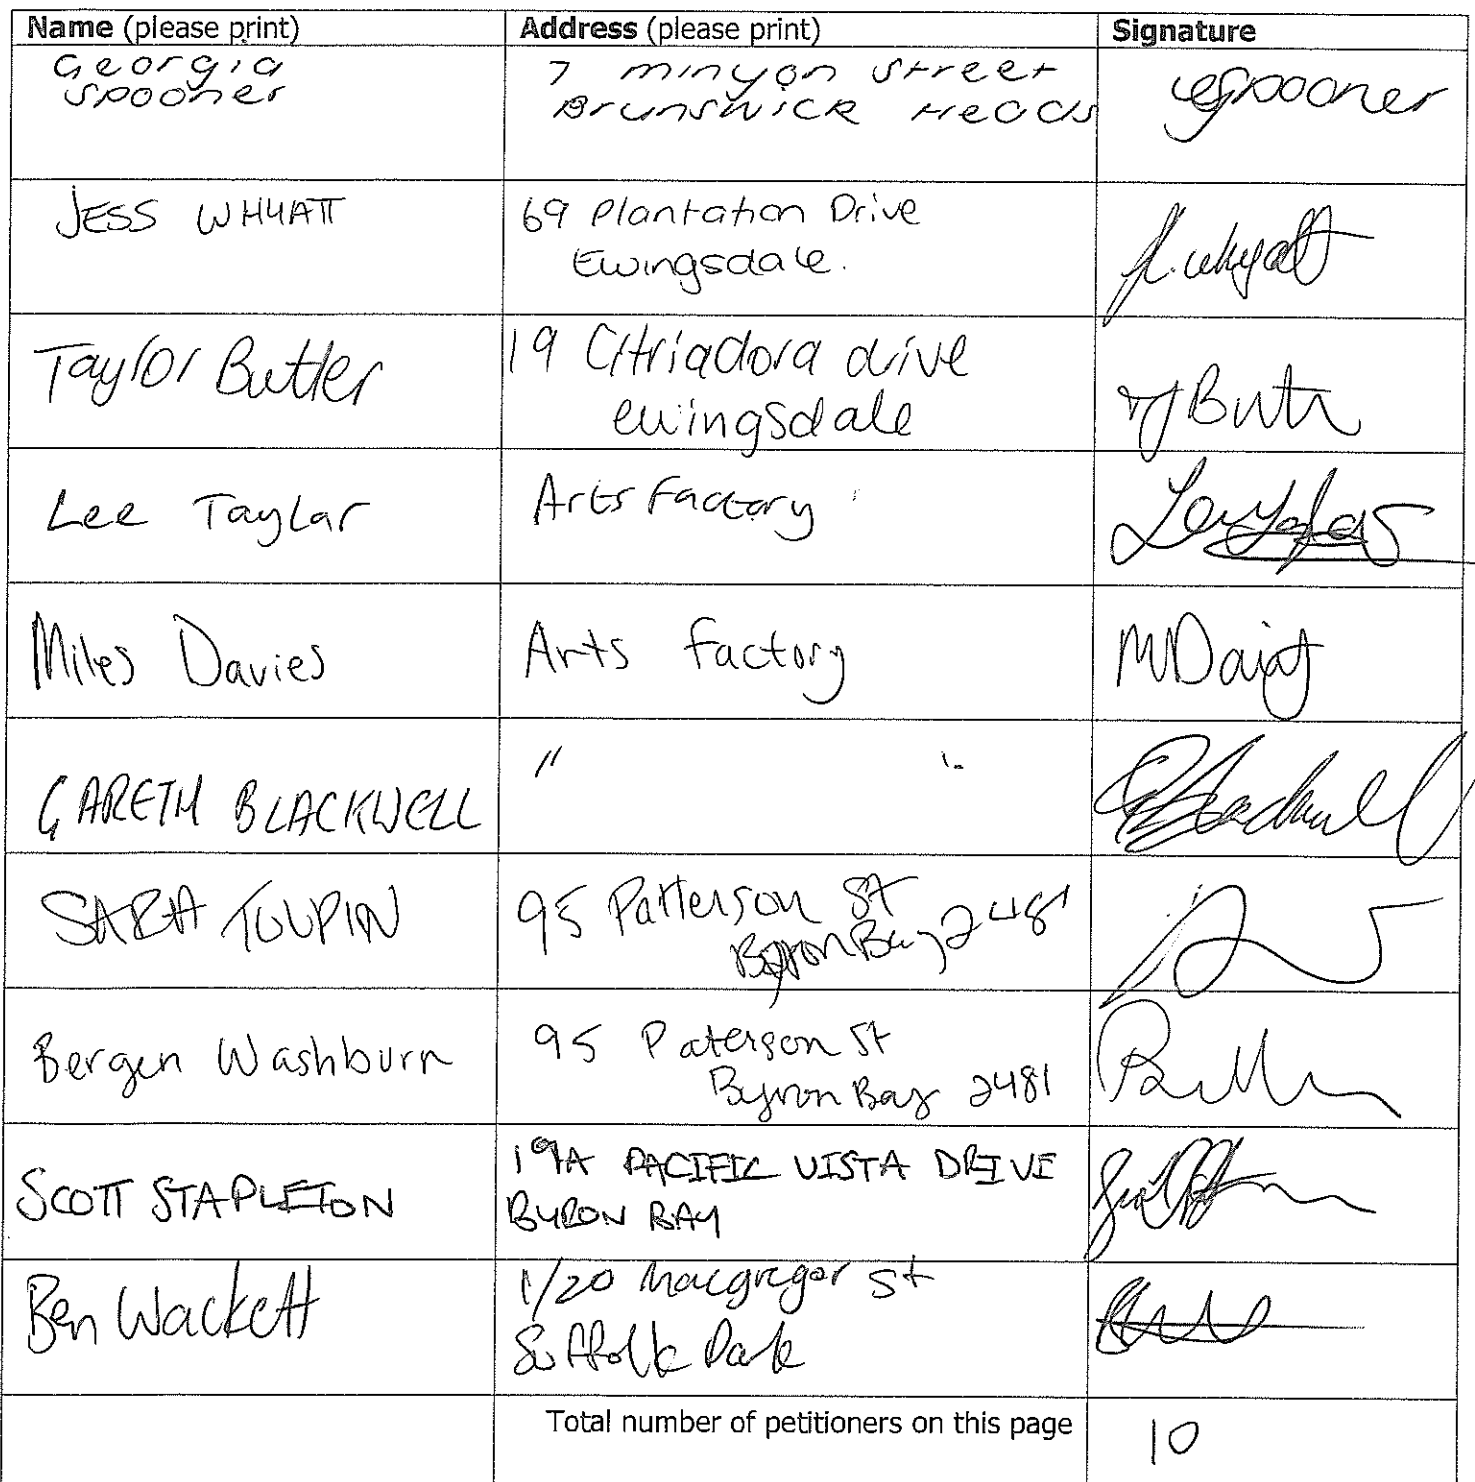 Name (please print) Address (please print) Signature
Georgia 7 minyon street
Spooner Brunswick Heads GSpooner
JESS WHYATT 69 Plantation Drive
Ewingsdale. J. Whyatt
Taylor Butler 19 Citriadora drive
ewingsdale
Lee Taylar Arts Factory
Miles Davies Arts factory
GARETH BLACKWELL " "
SARA TOUPIN 95 Patterson St
Byron Bay 2481
Bergen Washburn 95 Paterson St
Byron Bay 2481
SCOTT STAPLETON 19A PACIFIC VISTA DRIVE
BYRON BAY
Ben Wackett 1/20 Macgregor St
Suffolk Park
Total number of petitioners on this page 10